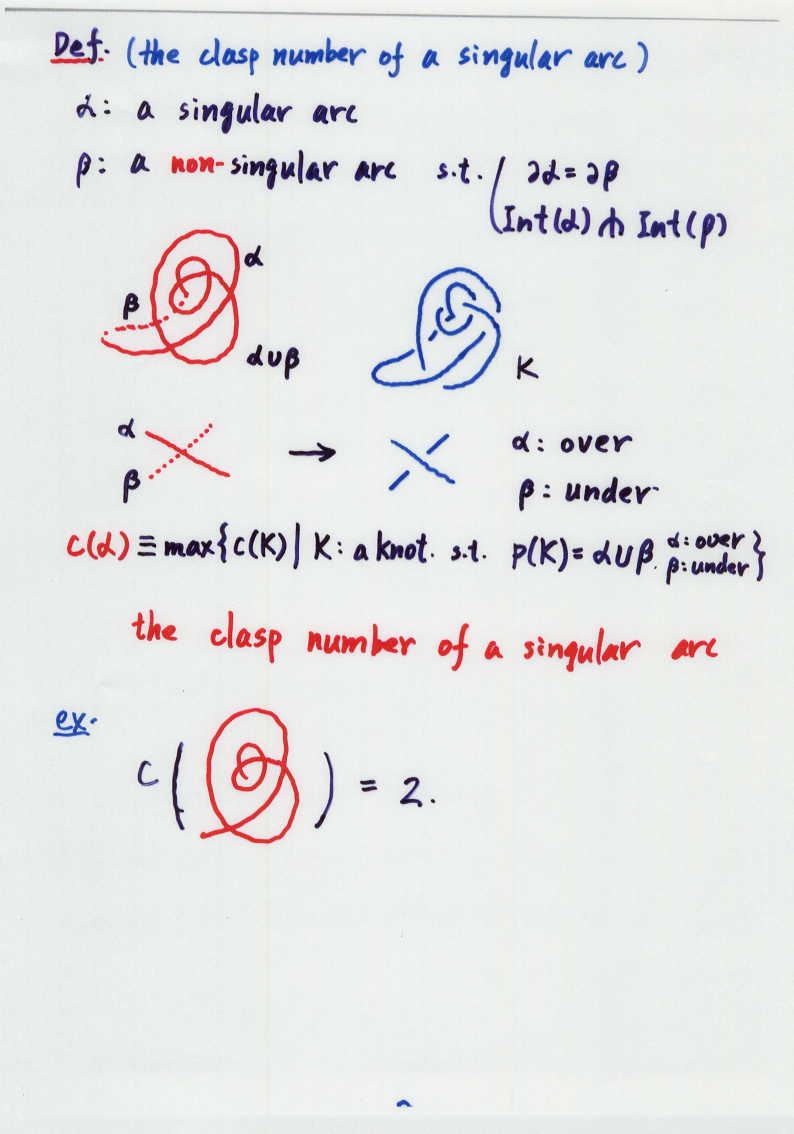 Def. (the clasp number of a singular arc)
α: a singular arc
β: a non-singular arc s.t. ( ∂α = ∂β
Int(α) ⋔ Int(β)
α
β
α∪β
K
α
β
→
α: over
β: under
c(α) ≡ max{c(K) | K: a knot. s.t. p(K) = α∪β. α: over β: under}
the clasp number of a singular arc
ex.
c( ) = 2.